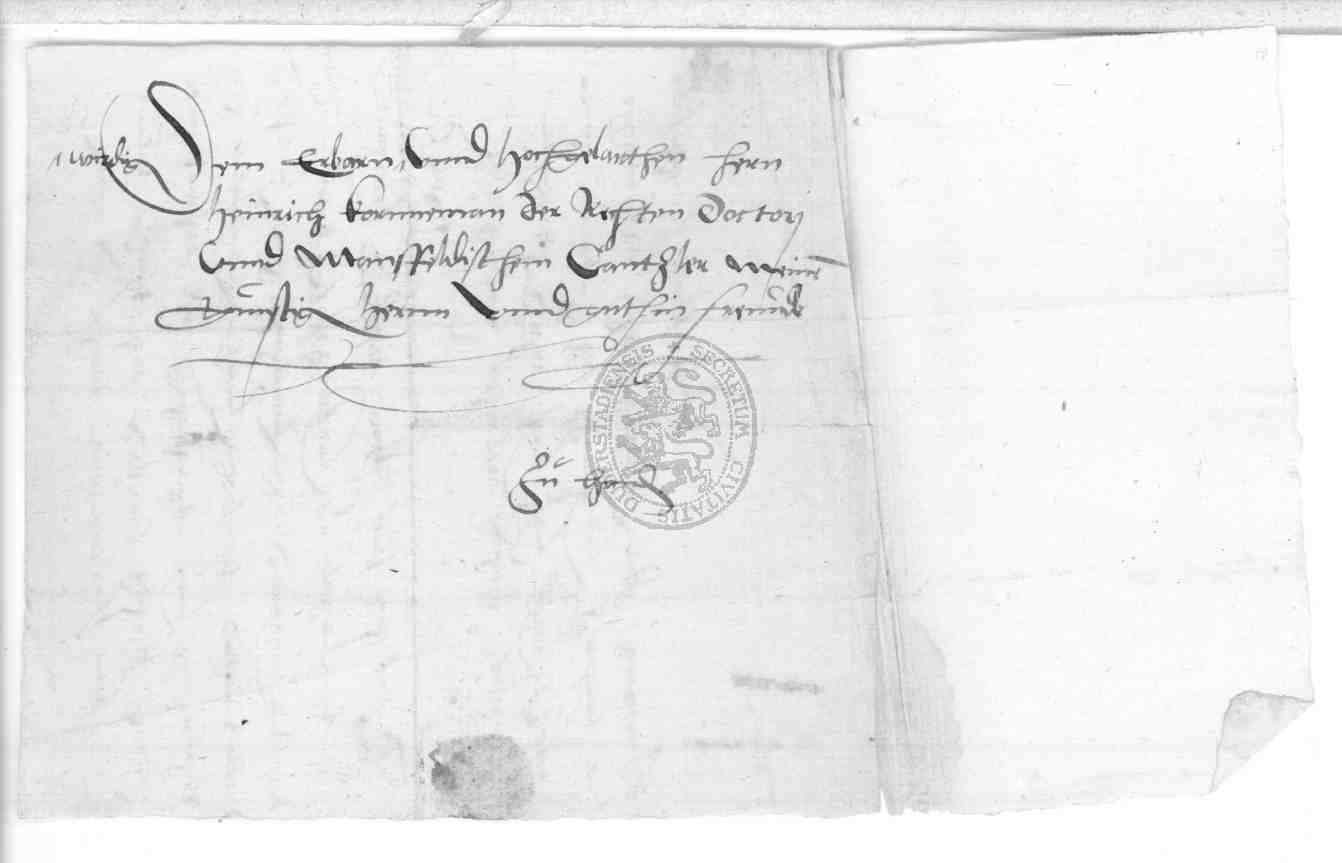 wirdig Dem Erbarn, Vnnd hochgelarthen hern
heinrich kornneman der Rechten Doctorj
Vnnd Mansffeldischem Cantzler Meine
Gunstig hernn Vnnd guthin freund
Zu hand
SECRETUM CIVITATIS DUDERSTADIENSIS